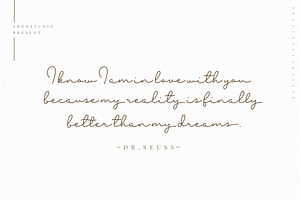 SRONSTUDIO
PRESENT
I know I am in love with you
because my reality is finally
better than my dreams.
~DR.SEUSS~